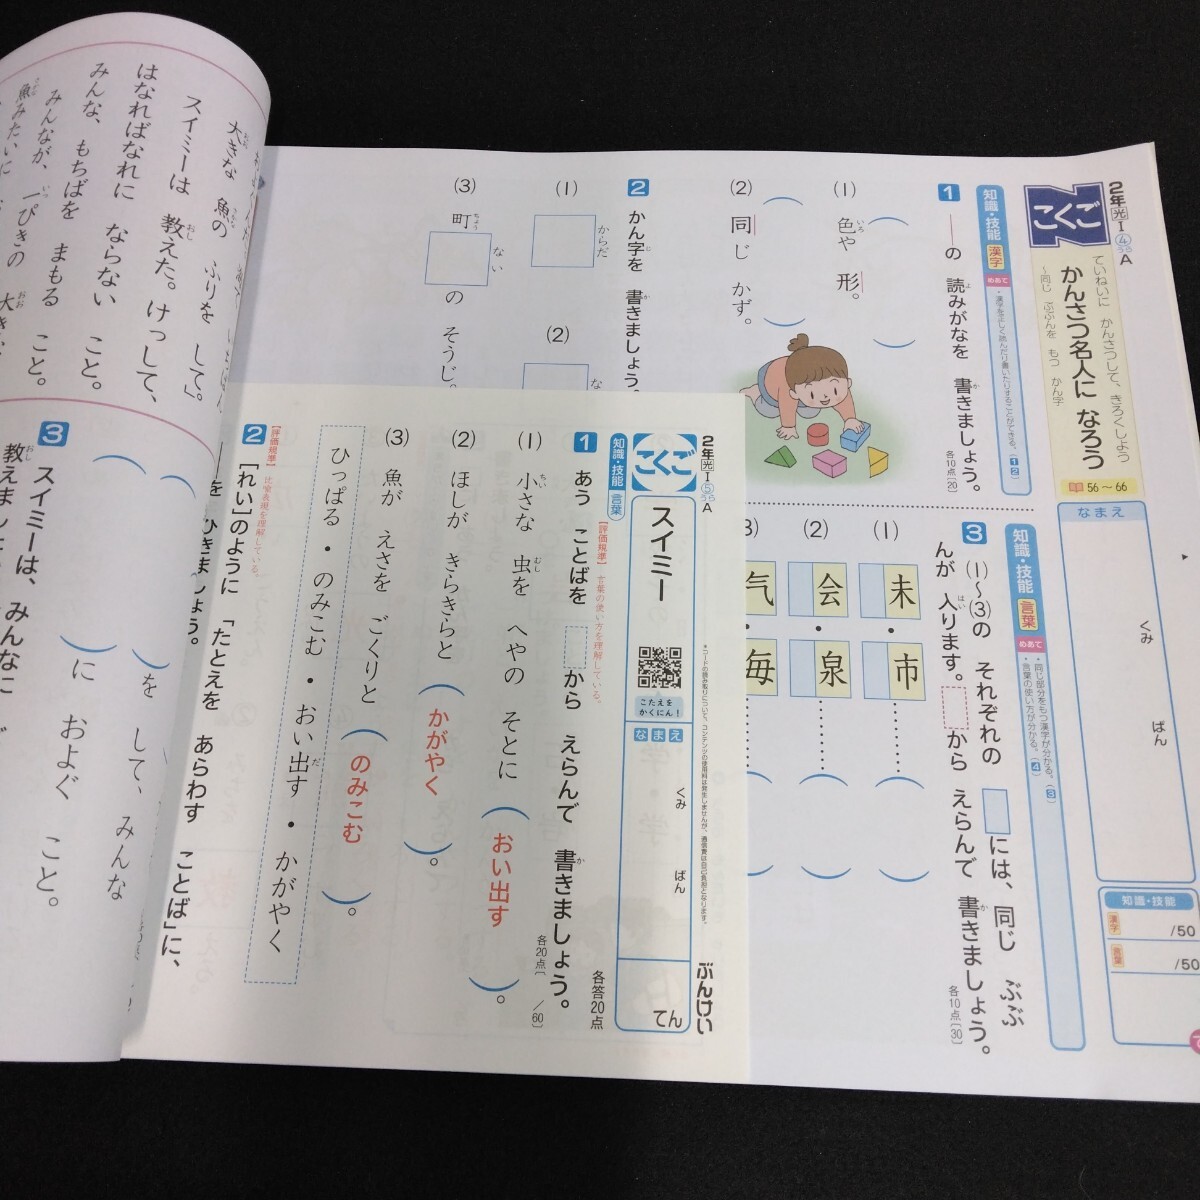 2年 光 Ⅰ ④ A
こくご
ていねいに かんさつして、きろくしよう
かんさつ名人に なろう
〜同じ ぶぶんを もつ かん字
56〜66
なまえ
くみ
ばん
知識・技能
漢字
/50
言葉
/50
知識・技能 漢字
めあて
・漢字を正しく読んだり書いたりすることができる。(1 2)
1 ―の 読みがなを 書きましょう。
各10点〔20〕
(1) 色や 形。
(2) 同じ かず。
2 かん字を 書きましょう。
(1) からだ
(2) な
(3) 町ない の そうじ。
知識・技能 言葉
めあて
・同じ部分をもつ漢字が分かる。(3)
・言葉の使い方が分かる。(4)
3 (1)〜(3)の それぞれの □には、同じ ぶぶ
んが 入ります。 から えらんで 書きましょう。
各10点〔30〕
(1) 未・市
(2) 会・泉
(3) 気・毎
2年 光 Ⅰ ⑤ A
こくご
スイミー
こたえを
かくにん!
*コードの読み取りについて、コンテンツの使用料は発生しませんが、通信費は自己負担となります。
なまえ
くみ
ばん
てん
ぶんけい
知識・技能 言葉
【評価規準】 言葉の使い方を理解している。
各答20点
1 あう ことばを から えらんで 書きましょう。
各20点〔/60〕
(1) 小さな 虫を へやの そとに (おい出す)。
(2) ほしが きらきらと (かがやく)。
(3) 魚が えさを ごくりと (のみこむ)。
ひっぱる・のみこむ・おい出す・かがやく
【評価規準】 比喩表現を理解している。
2 [れい]のように「たとえを あらわす ことば」に、
―を ひきましょう。
大きな 魚の ふりを して」。
スイミーは 教えた。けっして、
はなればなれに ならない こと。
みんな、もちばを まもる こと。
みんなが、一ぴきの 大き
魚みたいに
3 スイミーは、みんなに
教えまし
を して、みんな
に およぐ こと。